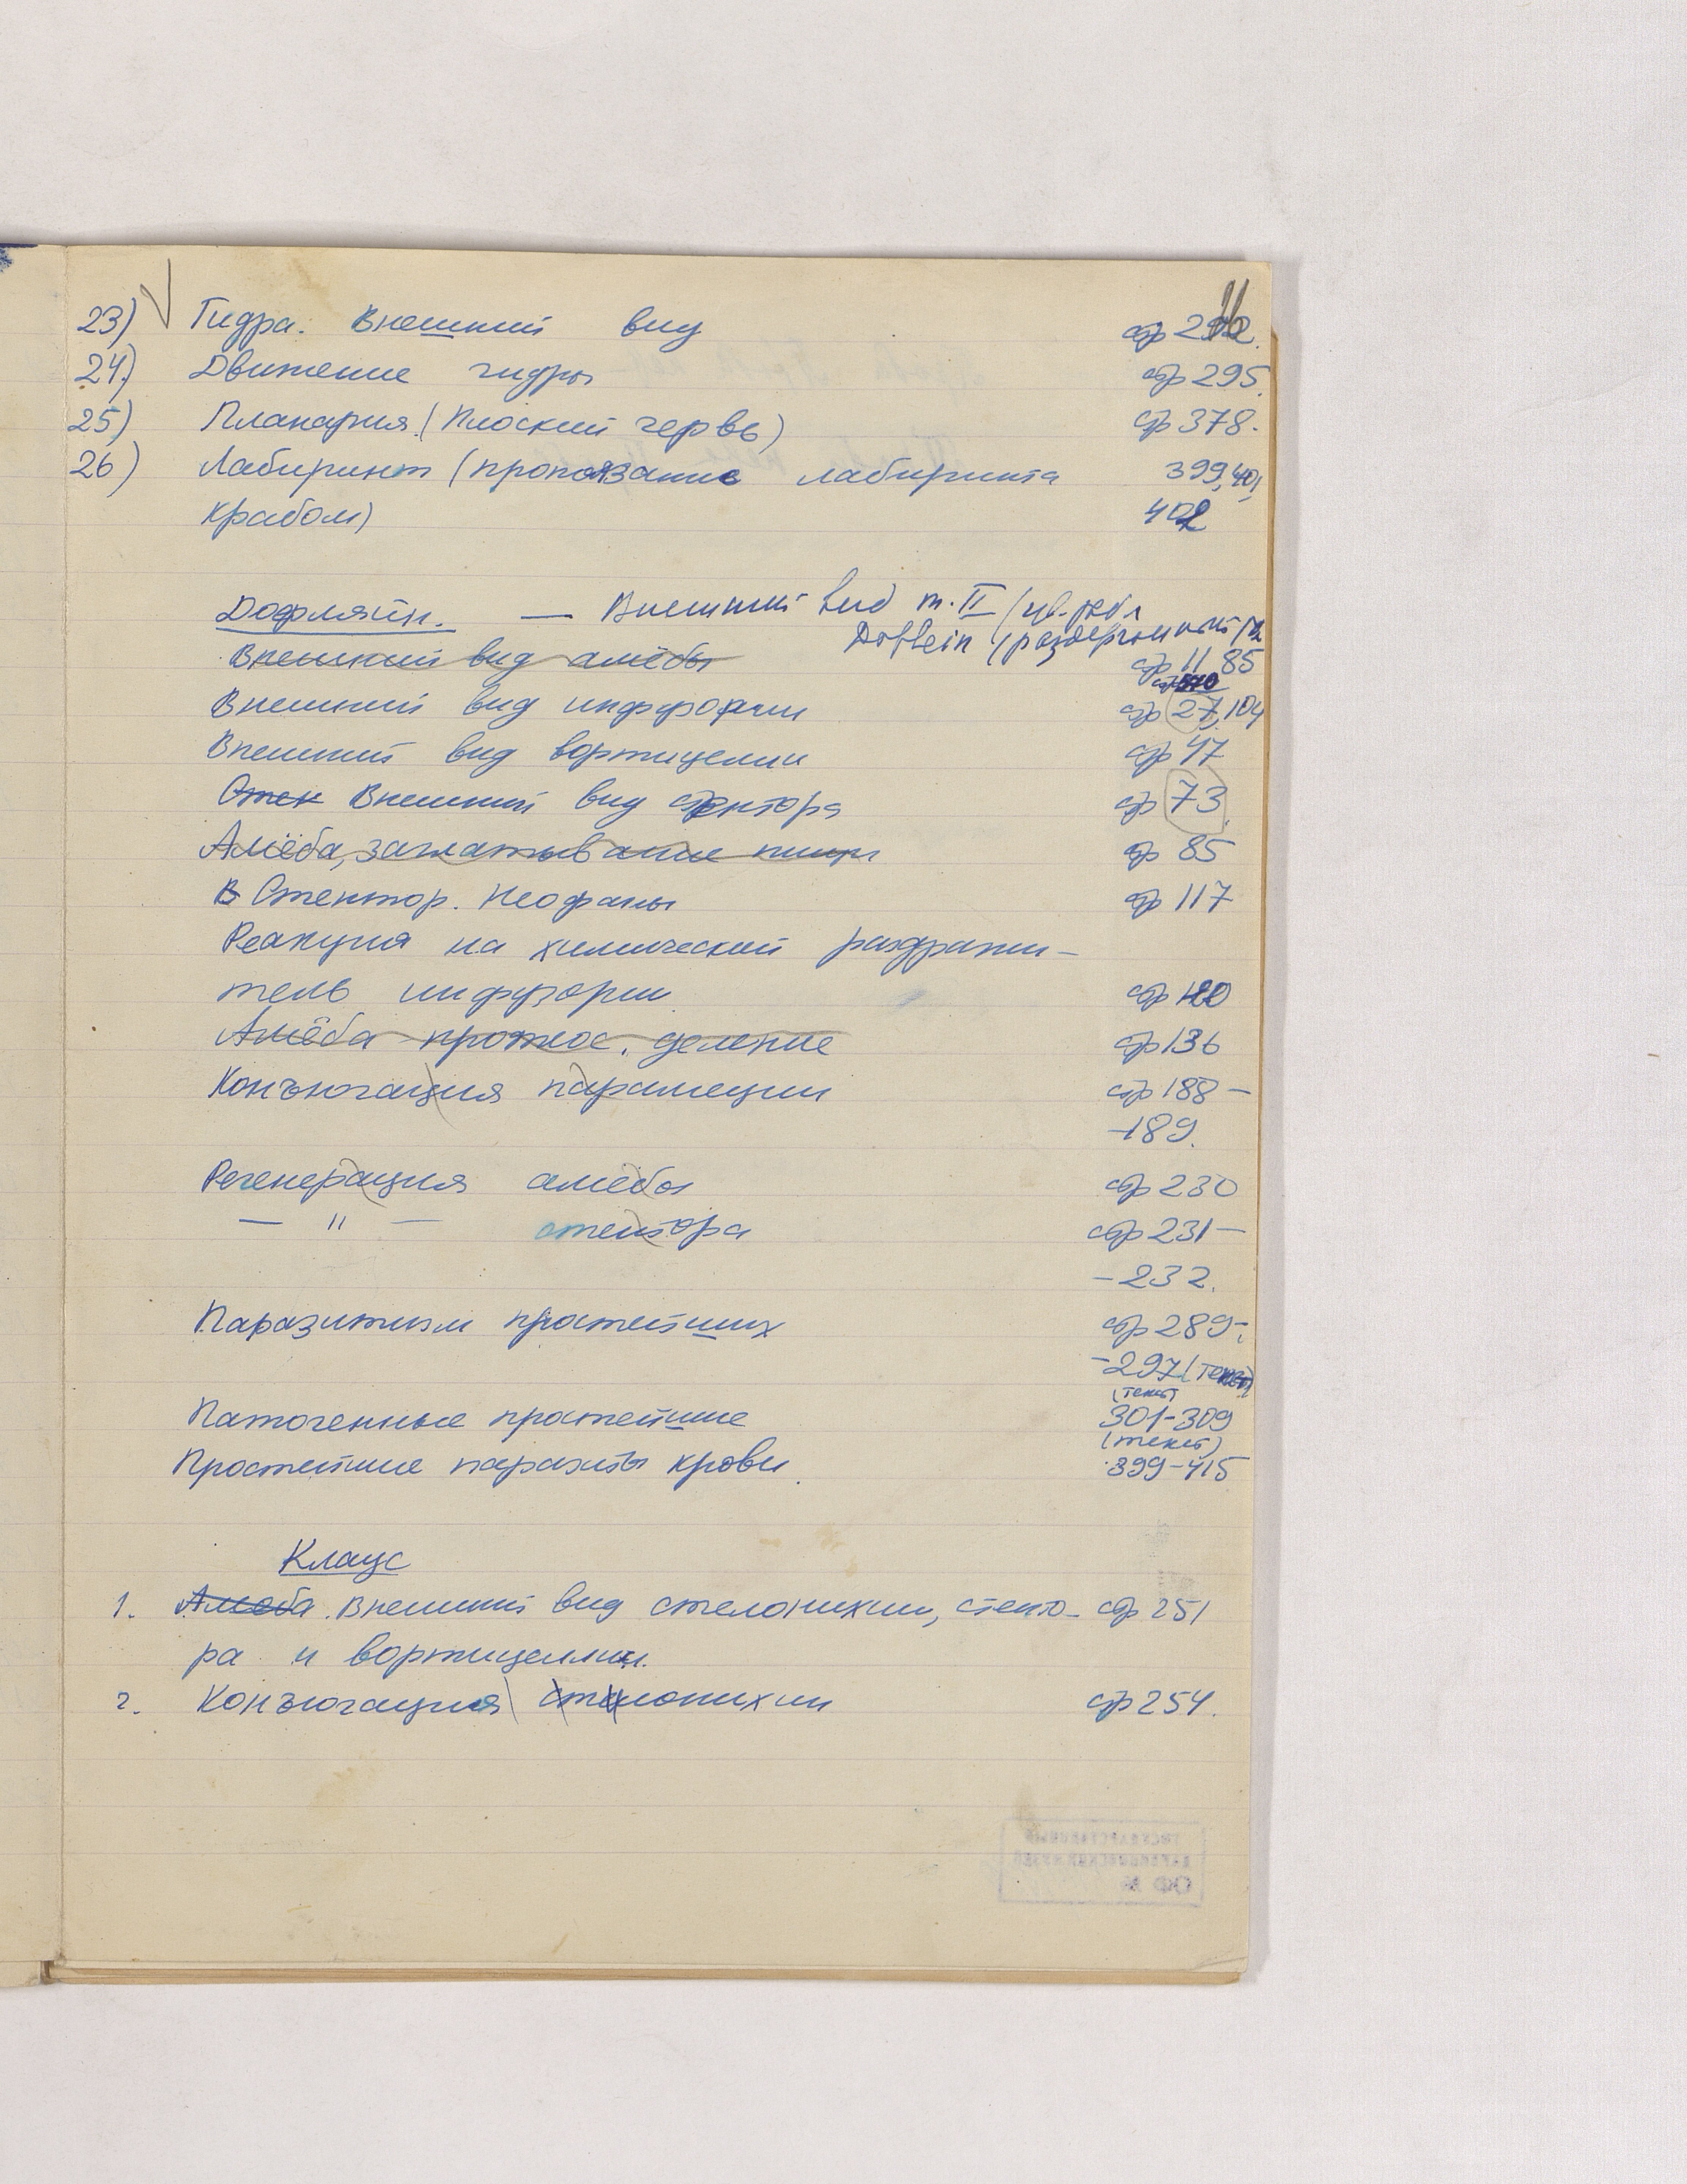 11
23) Гидра. Внешний вид стр 292.
24) Движение гидры стр 295.
25) Планария (Плоский червь) стр 378.
26) Лабиринт (проползание лабиринта 399, 401,
крабом) 402
Дофляйн. — Внешний вид т. II (цв. табл
Doflein
Внешний вид амёбы стр 11 85
Внешний вид инфузории стр 27, 104
Внешний вид вортицелии стр 47
Стен Внешний вид стентора стр 73
Амёба, заглатывание пищи стр 85
В Стентор. Неофаны стр 117
Реакция на химический раздражи-
тель инфузории стр 120
Амёба протеос. деление стр 136
Конъюгация парамеции стр 188 –
–189.
Регенерация амёбы стр 230
— " — стентора стр 231 –
– 232.
Паразитизм простейших стр 289-
-297 (текст)
(текст)
Патогенные простейшие 301-309
(текст)
Простейшие паразиты крови. 399-415
Клаус
1. Амёба. Внешний вид стелонихии, стенто- стр 251
ра и вортицеллии.
2. Конъюгация стилонихии стр 254.